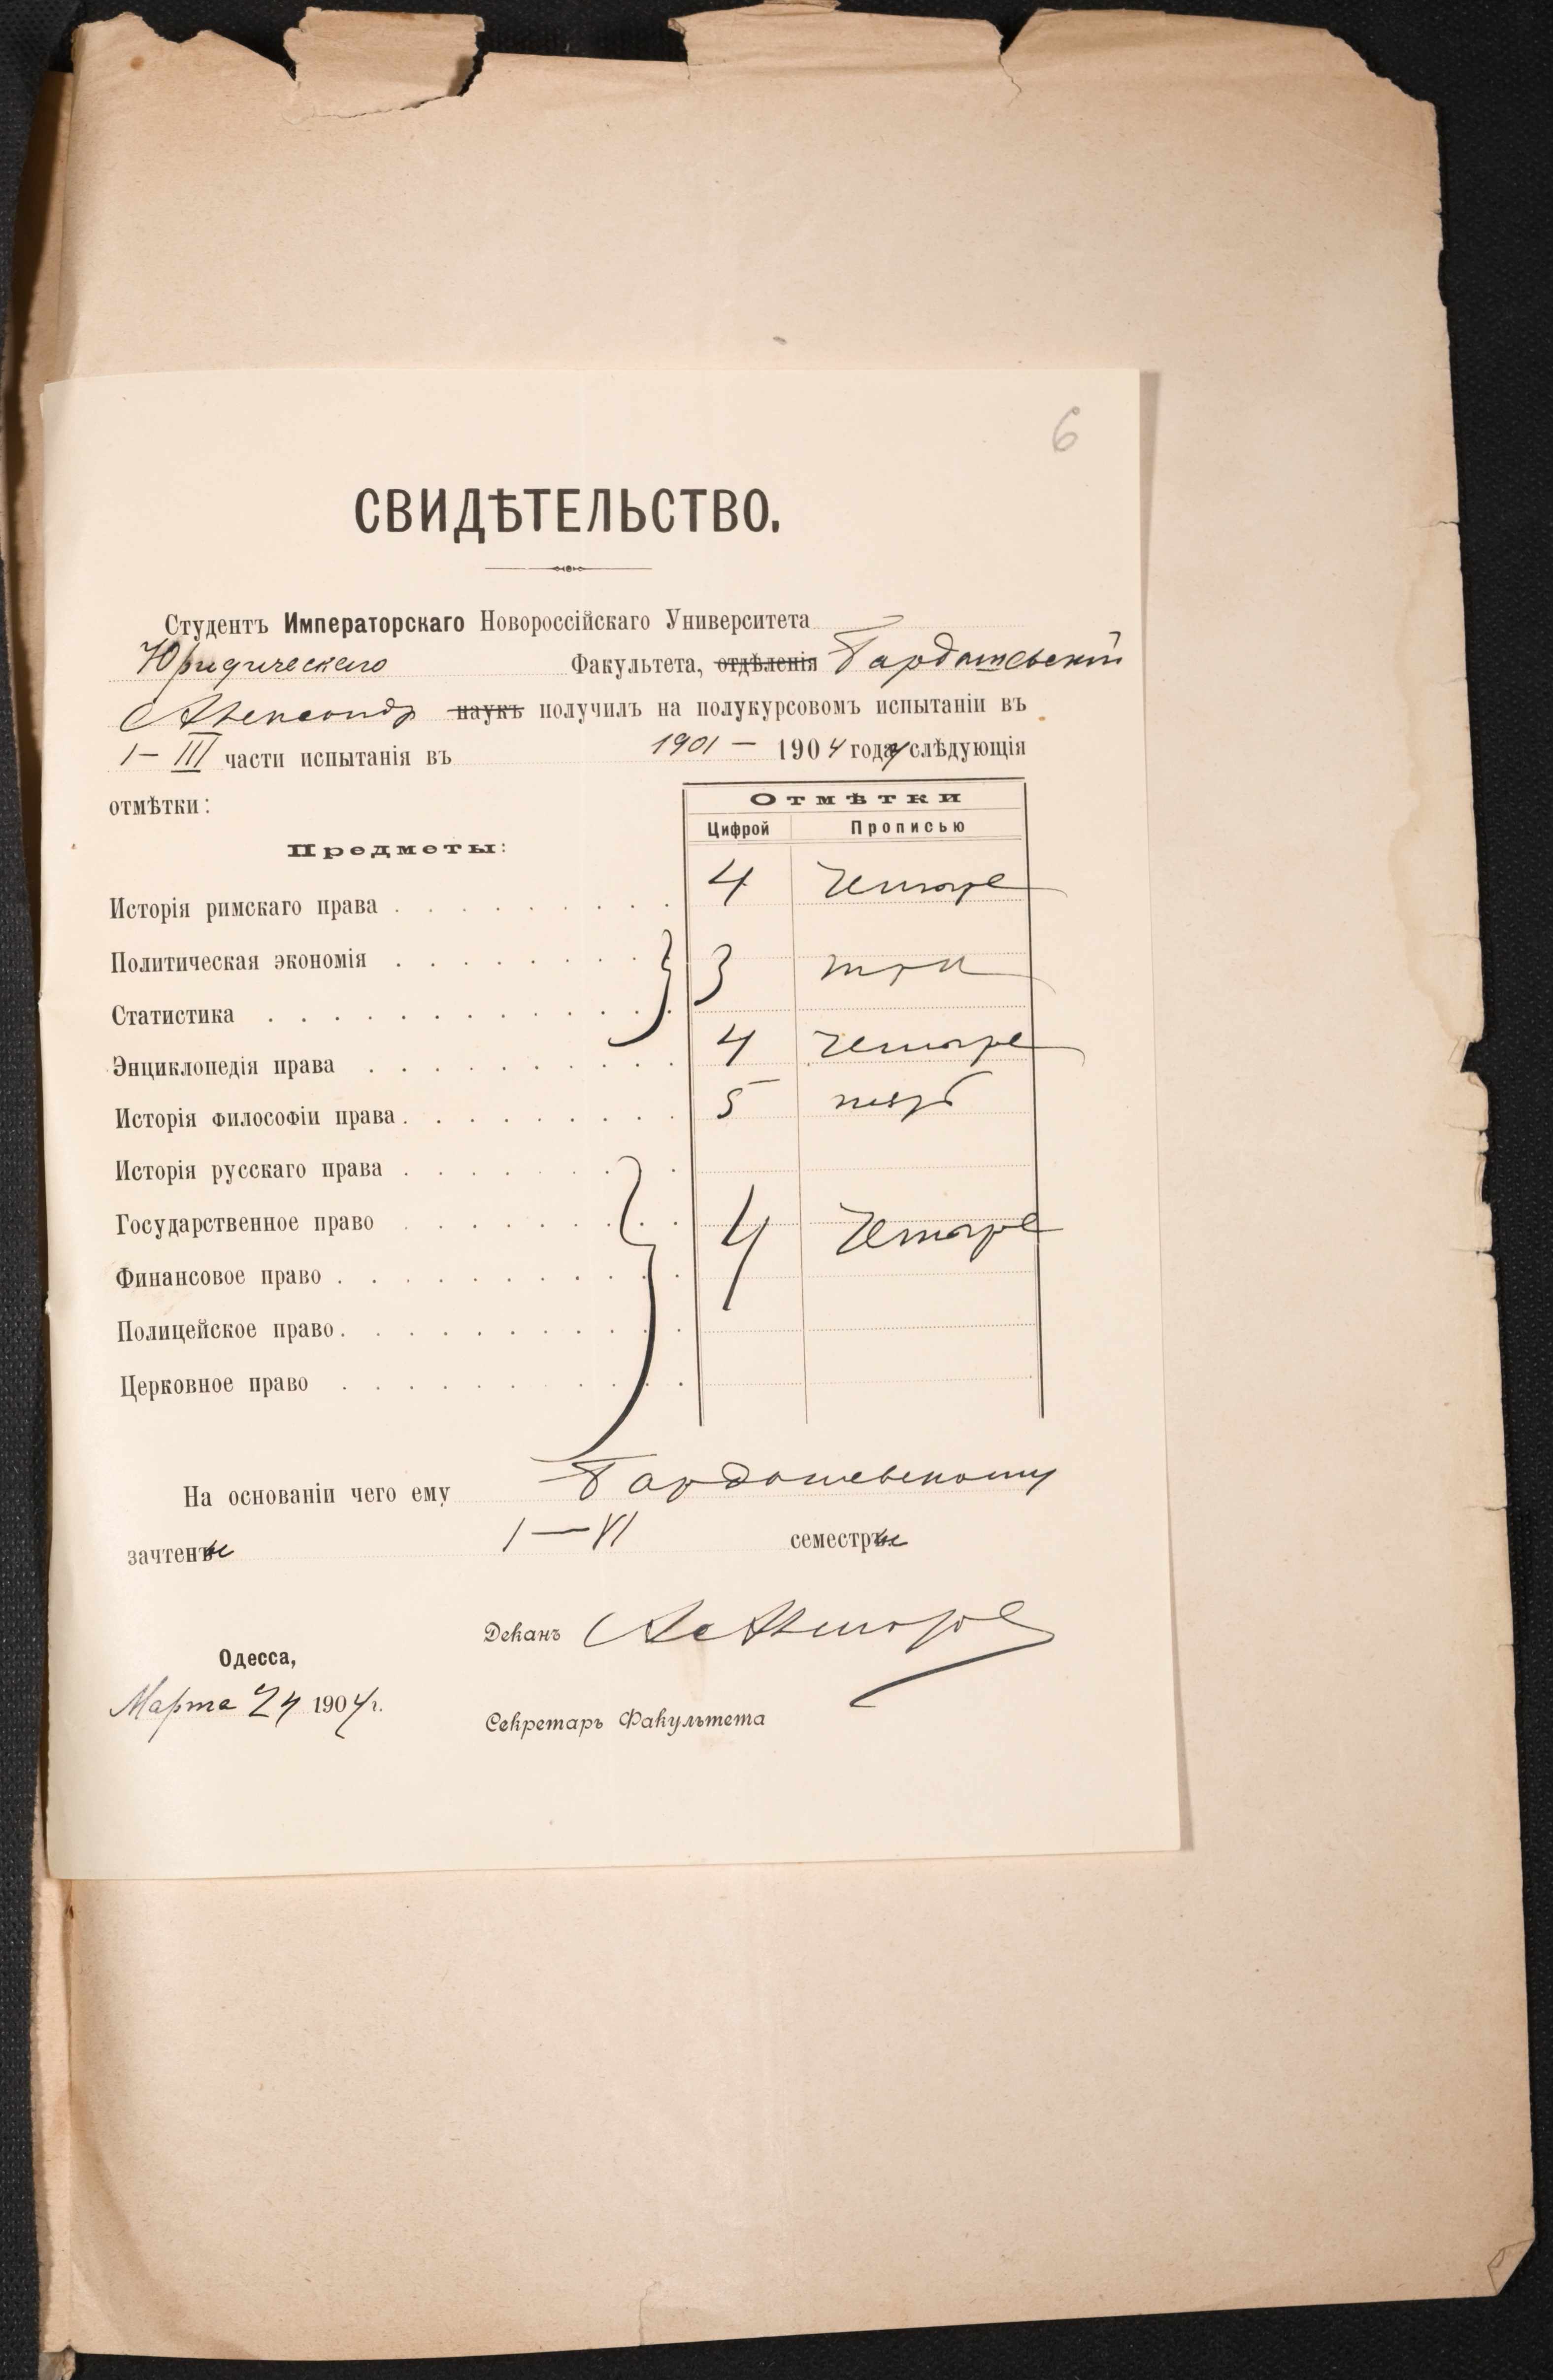 6
СВИДѢТЕЛЬСТВО.
Студентъ Императорскаго Новороссійскаго Университета
Юридическаго Факультета, отдѣленія Гардашевскій
Александр наукъ получилъ на полукурсовомъ испытаніи въ
I – III части испытанія въ 1901 – 1904 года слѣдующія
отмѣтки:
Отмѣтки
Цифрой Прописью
Предметы:
Исторія римскаго права 4 четыре
Политическая экономія 3 три
Статистика
Энциклопедія права 4 четыре
Исторія философіи права 5 пять
Исторія русскаго права
Государственное право 4 четыре
Финансовое право
Полицейское право
Церковное право
На основаніи чего ему Гардашевскому
зачтены I – VI семестры
Деканъ
Одесса,
Марта 24 1904 г.
Секретарь Факультета